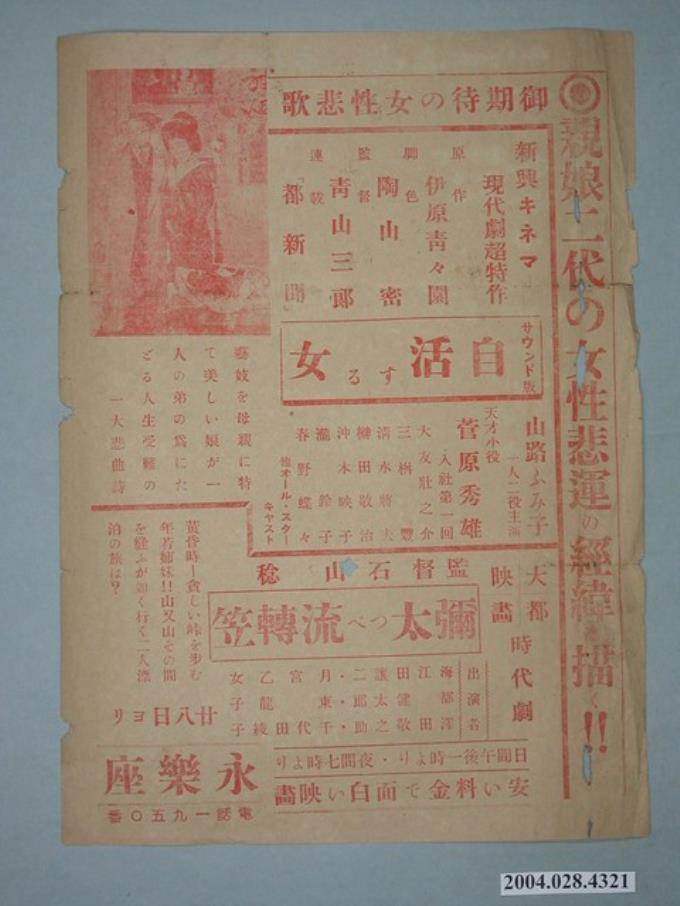 親娘二代の女性悲運の經緯を描く!!
御期待の女性悲歌
新興キネマ
現代劇超特作
原作 伊原青々園
脚色 陶山密
監督 青山三郎
連載「都新聞」
サウンド版
自活する女
山路ふみ子
一人二役主演
天才小役
菅原秀雄
入社第一回
大友壯之介
三桝豐
清水將夫
榊田敬治
沖木映子
瀧鈴子
春野蝶々
他オール・スター
キャスト
藝妓を母親に持
て美しい娘が一
人の弟の爲にた
どる人生受難の
一大悲曲詩
大都映畫
時代劇
監督石山稔
彌太つぺ流轉笠
出演者
海江田譲二・月宮乙女
都田建太郎・東龍子
澤田敬之助・千代田綾子
黃昏時ー貧しい峠を步む
年若姉妹!!山又山その間
を縫ふが如く行く二人漂
泊の旅は?
廿八日ヨリ
日間午後一時より・夜間七時より
安い料金で面白い映畫
永樂座
電話一九五〇番
2004.028.4321